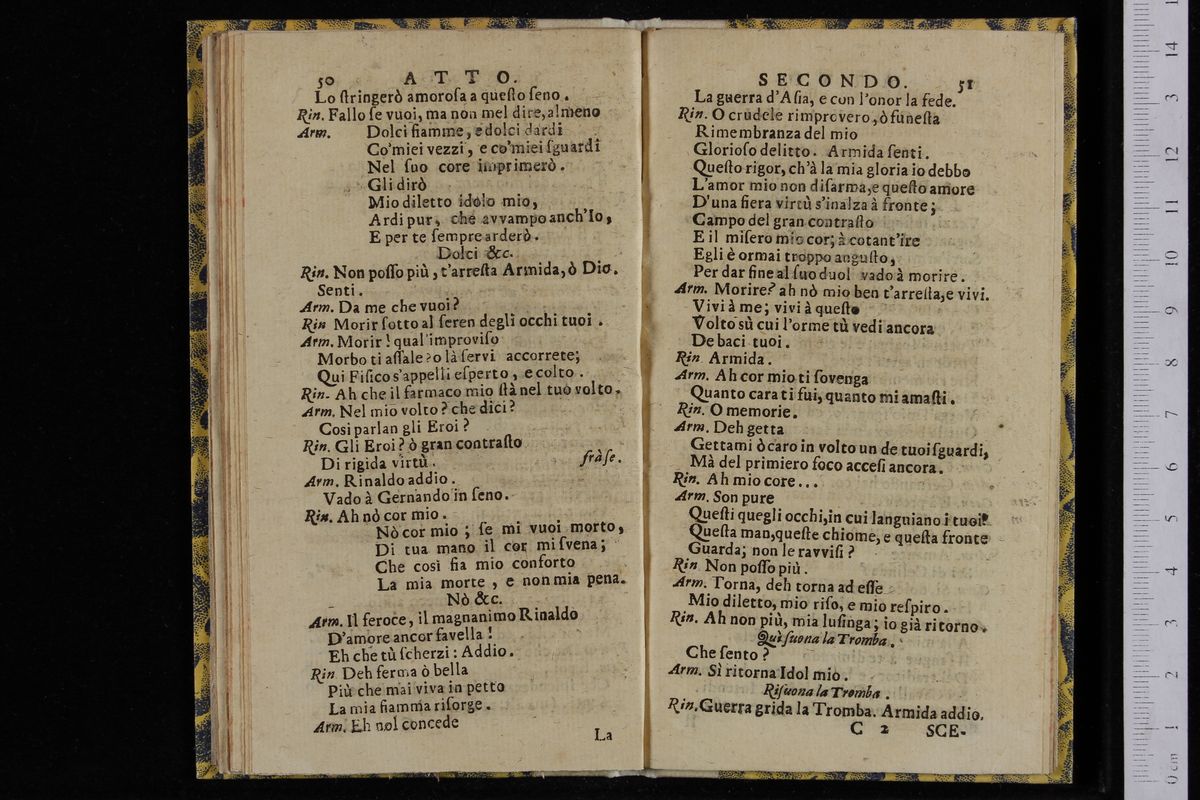 50 ATTO.
Lo ſtringerò amoroſa a queſto ſeno.
Rin. Fallo ſe vuoi, ma non mel dire, almeno
Arm. Dolci fiamme, e dolci dardi
Co'miei vezzi, e co'miei ſguardi
Nel ſuo core imprimerò.
Gli dirò
Mio diletto idolo mio,
Ardi pur, che avvampo anch'Io,
E per te ſempre arderò.
Dolci &c.
Rin. Non poſſo più, t'arreſta Armida, ò Dio.
Senti.
Arm. Da me che vuoi?
Rin Morir ſotto al ſeren degli occhi tuoi.
Arm. Morir! qual'improviſo
Morbo ti aſſale? o là ſervi accorrete;
Qui Fiſico s'appelli eſperto, e colto.
Rin. Ah che il farmaco mio ſtà nel tuo volto.
Arm. Nel mio volto? che dici?
Così parlan gli Eroi?
Rin. Gli Eroi? ò gran contraſto
Di rigida virtù. fràſe.
Arm. Rinaldo addio.
Vado à Gernando in ſeno.
Rin. Ah nò cor mio.
Nò cor mio; ſe mi vuoi morto,
Di tua mano il cor mi ſvena;
Che così fia mio conforto
La mia morte, e non mia pena.
Nò &c.
Arm. Il feroce, il magnanimo Rinaldo
D'amore ancor favella!
Eh che tù ſcherzi: Addio.
Rin Deh ferma ò bella
Più che mai viva in petto
La mia fiamma riſorge.
Arm. Eh nol concede
La
SECONDO. 51
La guerra d'Aſia, e con l'onor la fede.
Rin. O crudele rimprovero, ò funeſta
Rimembranza del mio
Glorioſo delitto. Armida ſenti.
Queſto rigor, ch'à la mia gloria io debbo
L'amor mio non diſarma, e queſto amore
D'una fiera virtù s'inalza à fronte;
Campo del gran contraſto
E il miſero mio cor; à cotant'ire
Egli è ormai troppo anguſto,
Per dar fine al ſuo duol vado à morire.
Arm. Morire? ah nò mio ben t'arreſta, e vivi.
Vivi à me; vivi à queſto
Volto sù cui l'orme tù vedi ancora
De baci tuoi.
Rin Armida.
Arm. Ah cor mio ti ſovenga
Quanto cara ti fui, quanto mi amaſti.
Rin. O memorie.
Arm. Deh getta
Gettami ò caro in volto un de tuoi ſguardi,
Mà del primiero foco acceſi ancora.
Rin. Ah mio core...
Arm. Son pure
Queſti quegli occhi, in cui languiano i tuoi?
Queſta man, queſte chiome, e queſta fronte
Guarda; non le ravviſi?
Rin Non poſſo più.
Arm. Torna, deh torna ad eſſe
Mio diletto, mio riſo, e mio reſpiro.
Rin. Ah non più, mia luſinga; io già ritorno.
Quì ſuona la Tromba.
Che ſento?
Arm. Sì ritorna Idol mio.
Riſuona la Tromba.
Rin. Guerra grida la Tromba. Armida addio.
C 2 SCE-